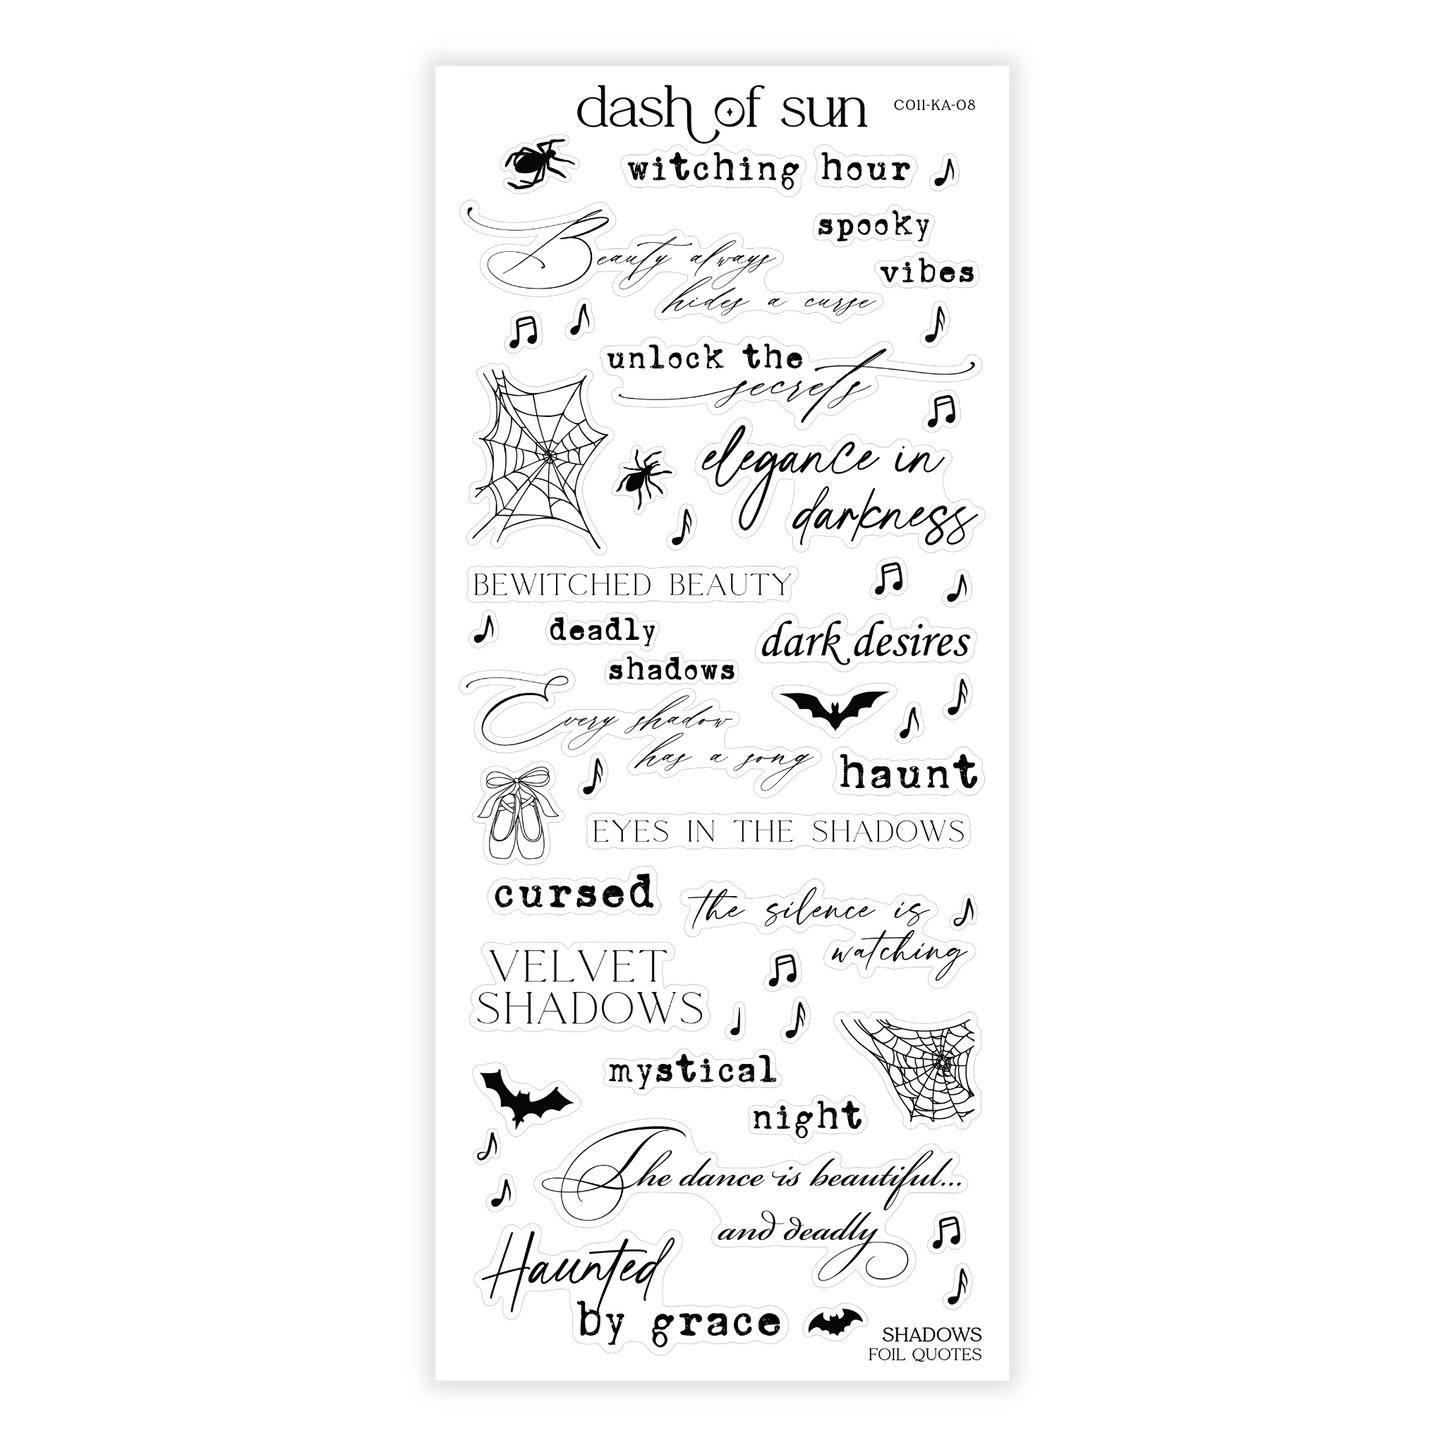 dash of sun
CO11-KA-08
witching hour
spooky
vibes
Beauty always
hides a curse
unlock the
secrets
elegance in
darkness
BEWITCHED BEAUTY
deadly
shadows
dark desires
Every shadow
has a song
haunt
EYES IN THE SHADOWS
cursed
the silence is
watching
VELVET
SHADOWS
mystical
night
The dance is beautiful...
and deadly
Haunted
by grace
SHADOWS
FOIL QUOTES